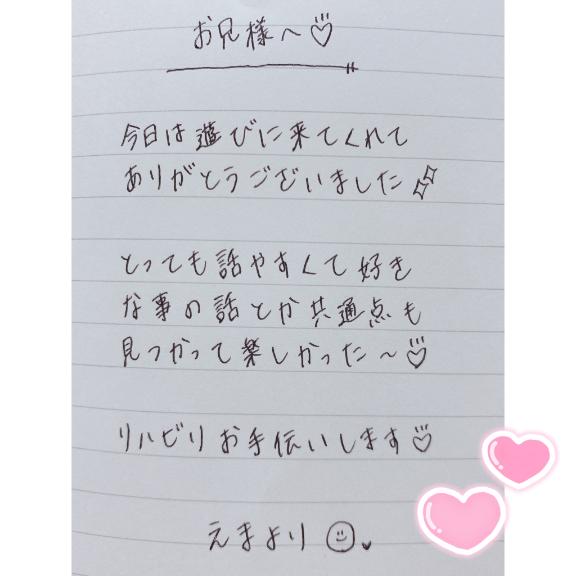 お兄様へ♡
今日は遊びに来てくれて
ありがとうございました✨
とっても話やすくて好き
な事の話とか共通点も
見つかって楽しかった〜♡
リハビリお手伝いします♡
えまより☺♥